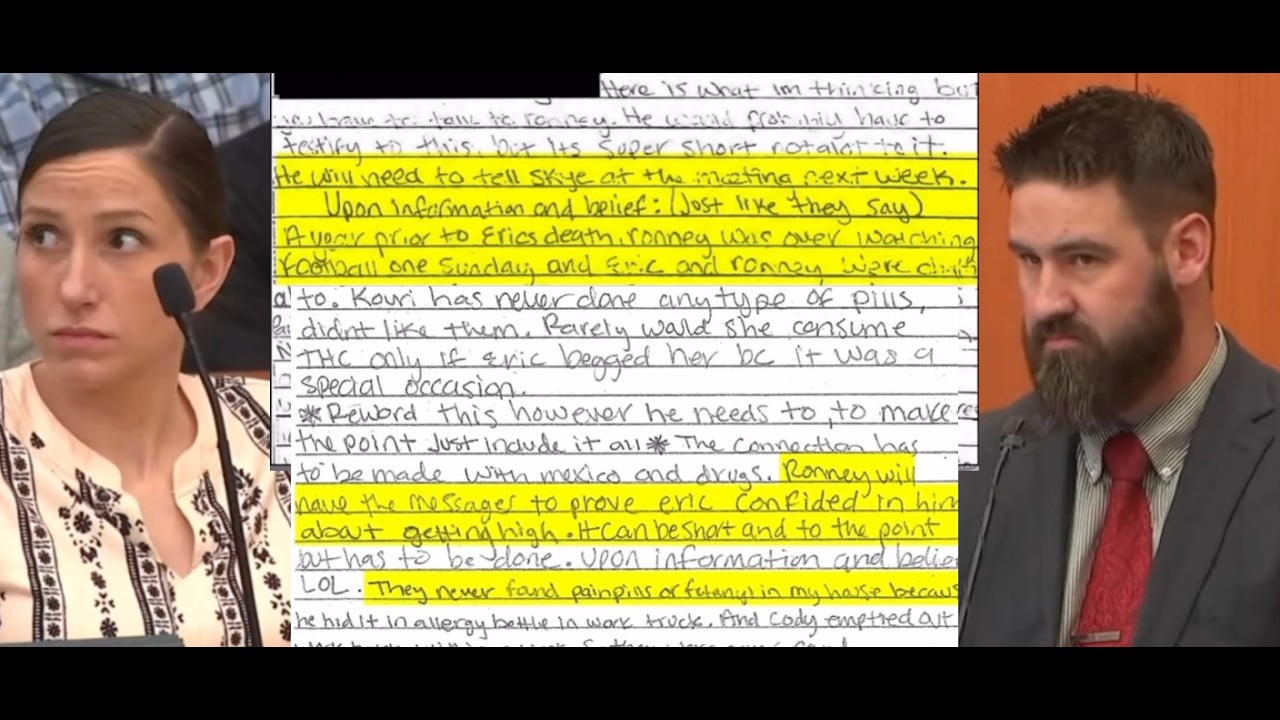 Here is what im thinking but
you have to talk to ronney. He would probibly have to
testify to this, but its super short not alot to it.
He will need to tell Skye at the meeting next week.
Upon information and belief: (Just like they say)
A year prior to Erics death, ronney was over watching
football one Sunday and Eric and ronney were
to. Kouri has never done any type of pills,
didnt like them. Rarely would she consume
THC only if Eric begged her bc it was a
special occasion.
*Reword this however he needs to, to make
the point Just include it all* The connection has
to be made with mexico and drugs. Ronney will
have the messages to prove eric confided in him
about getting high. It can be short and to the point
but has to be done. Upon information and belie
LOL. They never found painpills or fetanyl in my house becaus
he hid it in allergy bottle in work truck. And Cody emptied out